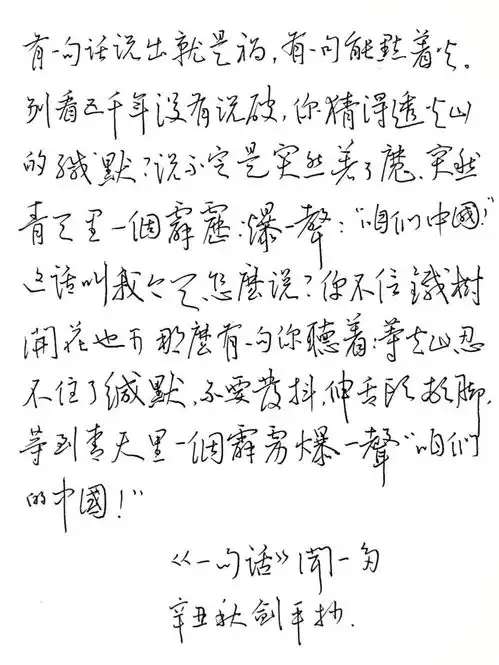 有一句话说出就是祸,有一句能點着火。
别看五千年没有说破,你猜得透火山
的缄默?说不定是突然着了魔,突然
青天里一個霹靂.爆一聲:“咱们中國!”
这话叫我今天怎麽说?你不信鐵樹
開花也可那麽有一句你聽着:等火山忍
不住了缄默,不要發抖,伸舌頭,頓脚,
等到青天里一個霹雳爆一聲“咱们
的中國!”
《一句话》聞一多
辛丑秋劍平抄.